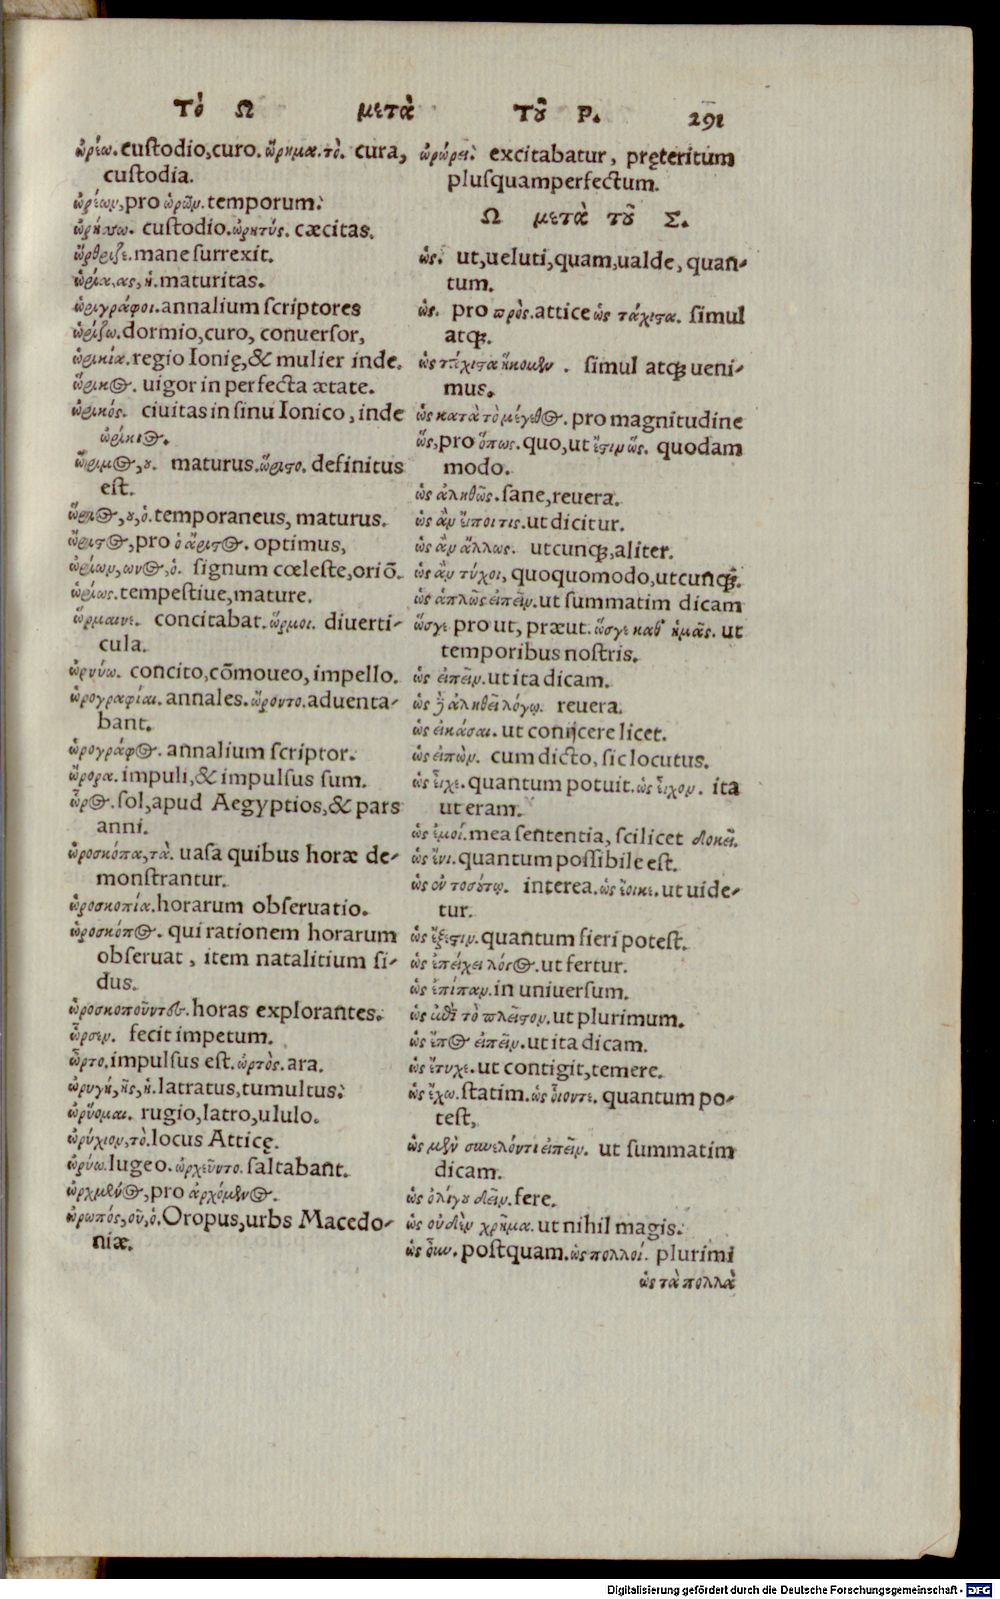 Τὸ Ω μετὰ τοῦ Ρ. 291
ὠρέω. custodio, curo. ὤρημα. τὸ. cura,
custodia.
ὡρέων, pro ὡρῶν. temporum:
ὠρήσω. custodio. ὠρητύς. cæcitas.
ὤρθριζε. mane surrexit.
ὡρία, ας, ἡ. maturitas.
ὡριγράφοι. annalium scriptores
ὠρίζω. dormio, curo, conuersor,
ὠρικία. regio Ionię, & mulier inde.
ὥρικος. uigor in perfecta ætate.
ὠρικός. ciuitas in sinu Ionico, inde
ὠρίκιος.
ὥριμος, ου. maturus. ὥριστο. definitus
est.
ὥριος, ου, ὁ. temporaneus, maturus.
ὤριστος, pro ὁ ἄριστος. optimus,
ὠρίων, ωνος, ὁ. signum cœleste, oriō.
ὡρίως. tempestiue, mature.
ὥρμαινε. concitabat. ὥρμοι. diuerti-
cula.
ὠρνύω. concito, cōmoueo, impello.
ὡρογραφίαι. annales. ὥροντο. aduenta-
bant.
ὡρογράφος. annalium scriptor.
ὤρορα. impuli, & impulsus sum.
ὧρος. sol, apud Aegyptios, & pars
anni.
ὡροσκόπα, τὰ. uasa quibus horæ de-
monstrantur.
ὡροσκοπία. horarum obseruatio.
ὡροσκόπος. qui rationem horarum
obseruat, item natalitium si-
dus.
ὡροσκοποῦντες. horas explorantes.
ὦρσεν. fecit impetum.
ὦρτο. impulsus est. ὠρτὸς. ara.
ὠρυγή, ῆς, ἡ. latratus, tumultus:
ὠρύομαι. rugio, latro, ululo.
ὠρύχιον, τὸ. locus Atticę.
ὠρύω. lugeo. ὠρχεῦντο. saltabant.
ὠρχμένος, pro ἀρχόμενος.
ὠρωπός, οῦ, ὁ. Oropus, urbs Macedo-
niæ.
ὠρώρει: excitabatur, pręteritum
plusquamperfectum.
Ω μετὰ τοῦ Σ.
ὡς. ut, ueluti, quam, ualde, quan-
tum.
ὡς. pro πρὸς. attice ὡς τάχιστα. simul
atq;.
ὡς τάχιστα ἥκομεν. simul atq; ueni-
mus.
ὡς κατὰ τὸ μέγεθος. pro magnitudine
ὥς, pro ὅπως. quo, ut ἔστιν ὥς. quodam
modo.
ὡς ἀληθῶς. sane, reuera.
ὡς ἂν εἴποι τις. ut dicitur.
ὡς ἂν ἄλλως. utcunq;, aliter.
ὡς ἂν τύχοι, quoquomodo, utcunq;.
ὡς ἁπλῶς εἰπεῖν. ut summatim dicam
ὥσγε pro ut, præut. ὥσγε καθ' ἡμᾶς. ut
temporibus nostris.
ὡς εἰπεῖν. ut ita dicam.
ὡς ἐν ἀληθεῖ λόγῳ. reuera.
ὡς εἰκάσαι. ut conijcere licet.
ὡς εἰπὼν. cum dicto, sic locutus.
ὡς εἶχε. quantum potuit. ὡς εἶχον. ita
ut eram.
ὡς ἐμοί. mea sententia, scilicet δοκεῖ.
ὡς ἔνι. quantum possibile est.
ὡς ἐν τοσούτῳ. interea. ὡς ἔοικε. ut uide-
tur.
ὡς ἔξεστιν. quantum fieri potest.
ὡς ἐπέχει λόγος. ut fertur.
ὡς ἐπίπαν. in uniuersum.
ὡς ἐπὶ τὸ πλεῖστον. ut plurimum.
ὡς ἔπος εἰπεῖν. ut ita dicam.
ὡς ἔτυχε. ut contigit, temere.
ὡς ἔχω. statim. ὡς οἷόν τε. quantum po-
test,
ὡς μὲν συνελόντι εἰπεῖν. ut summatim
dicam.
ὡς ὀλίγου δεῖν. fere.
ὡς οὐδὲν χρῆμα. ut nihil magis.
ὡς οὖν. postquam. ὡς πολλοί. plurimi
ὡς τὰ πολλὰ
Digitalisierung gefördert durch die Deutsche Forschungsgemeinschaft - DFG